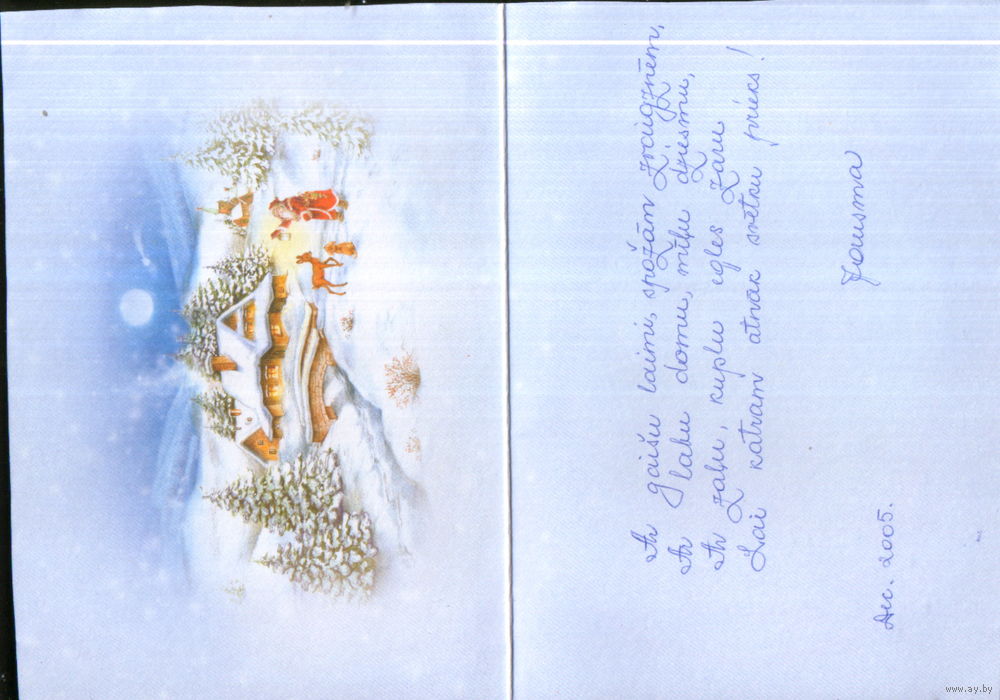 Ar gaišu laimi, spožām zvaigznēm,
Ar labu domu, mīļu dziesmu,
Ar zaļu, kuplu egles zaru
Lai katram atnāk svētau prieks!
Jausma
Dec. 2005.
www.ay.by